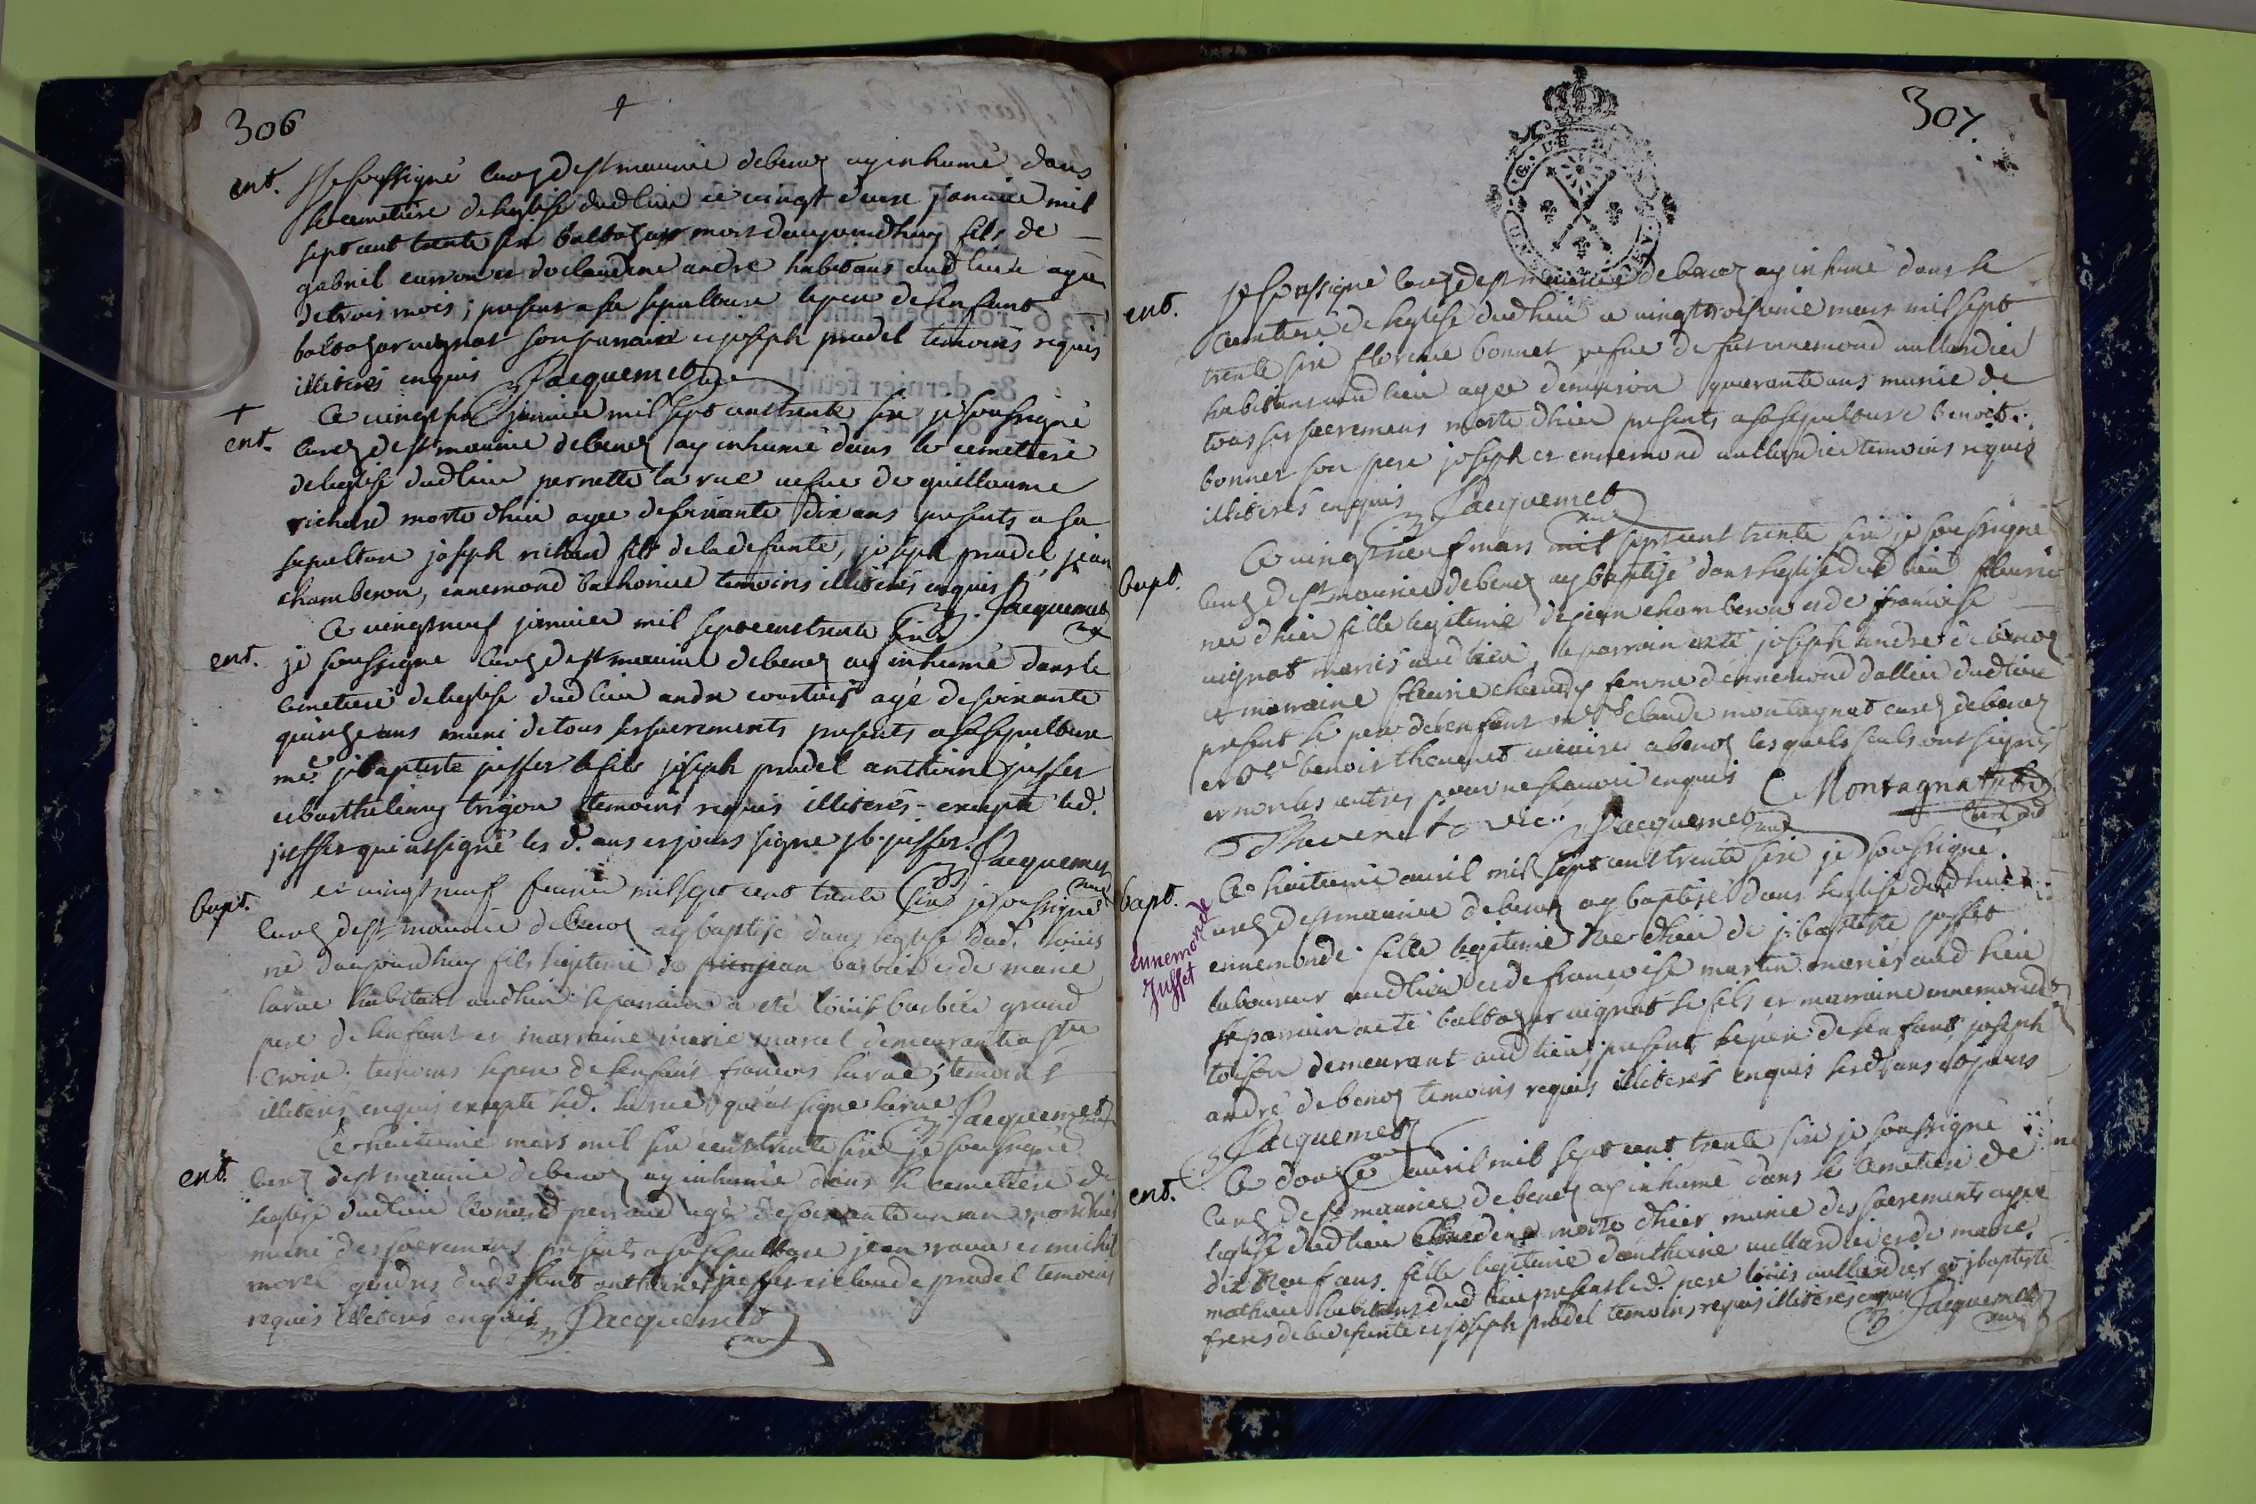 306
+
ent. Je soussigné curé de st maurice de benoz ay inhumé dans
le cemetiere de leglise dud lieu ce vingt deux janvier mil
sept cent trente six baltazar mort daujourdhuy fils de
gabriel curron et de claudine andré habitans aud lieu agé
de trois mois; present a sa sepulture le pere de lenfant
baltazar vignat son parrain et joseph pradel temoins requis
illiterés enquis Jacquemet curé
+
ent. Ce vingt six janvier mil sept cent trente six je soussigné
curé de st maurice de benoz ay inhumé dans le cemetiere
de leglise dud lieu pernette la rue vefue de guillaume
richard morte dhier agee de soixante dix ans presents a sa
sepulture joseph richard fils de la defunte, joseph pradel jean
chamberon, ennemond bachonier temoins illiterés enquis Jacquemet curé
Ce vingtneuf janvier mil sept cent trente six
ent. je soussigne curé de st maurice de benoz ay inhumé dans le
cemetiere de leglise dud lieu andre courtois agé de soixante
quinze ans muni de tous ses sacrements presents a sa sepulture
me jbaptiste juffet le fils joseph pradel anthoine juffet
et barthelemy trigon temoins requis illiterés excepté led.
juffet qui a signé les d. ans et jours signe jb juffet. Jacquemet curé
ce vingtneuf feurier mil sept cent trente six je soussigné
bapt. curé de st maurice de benoz ay baptisé dans leglise dud. louis
né daujourdhuy fils legitime de jean barbier et de marie
larue habitans aud lieu le parrain a eté louis barbier grand
pere de lenfant et marraine marie marcel demeurante a ste
croix, temoins le pere de lenfant francois larue; temoins
illiterés enquis excepté led. larue qui a signé larue Jacquemet curé
Ce huitieme mars mil six cent trente six je soussigné
ent. curé de st maurice de benoz ay inhumé dans le cemetiere de
leglise dud lieu leonard perraud agé de soixante un an mort dhier
muni des sacremens presents a sa sepulture jean raux et michel
morel gendres dud defunt anthoine juffet et claude pradel temoins
requis illiterés enquis Jacquemet curé
307.
ent. Je soussigné curé de st maurice de benoz ay inhumé dans le
cemetiere de leglise dud lieu ce vingt troisieme mars mil sept
trente six florence bonnet vefue de fut ennemond aullardier
habitans aud lieu agee denuiron quarante ans munie de
tous ses sacremens morte dhier presents a sa sepulture benoit
bonnet son pere joseph et ennemond aullardier temoins requis
illiterés enquis Jacquemet curé
Ce vingtneuf mars mil sept cent trente six je soussigné
bapt. curé de st maurice de benoz ay baptisé dans leglise dud lieu fleurie
nee dhier fille legitime de jean chamberon et de francoise
vignat mariés aud lieu, le parrain a eté joseph andré de benoz
et marraine fleurie chaudy femme dennemond dallier dud lieu
present le pere de lenfant mre claude montagnat curé de benoz
et Sr benoit thevenet vicaire a benoz lesquels seuls ont signés
et non les autres pour ne scauoir enquis C Montagnat
Thevenet vic. Jacquemet curé
bapt. Ce huitieme auril mil sept cent trente six je soussigné
curé de st maurice de benoz ay baptisé dans leglise dud lieu
ennemonde fille legitime nee dhier de j: baptiste juffet
laboureur aud lieu et de francoise martin mariés aud lieu
le parrain a eté baltazar vignat le fils et marraine ennemonde
toison demeurant aud lieu, present le pere de lenfant, joseph
andré de benoz temoins requis illiterés enquis lesd ans et jours
Jacquemet
ennemonde
Juffet
Ce douze auril mil sept cent trente six je soussigné
ent. curé de st maurice de benoz ay inhumé dans le cemetiere de
leglise dud lieu claudine morte dhier munie des sacrements agee
dix neuf ans fille legitime danthoine aullardier et de marie
mathieu habitans dud lieu present led. pere louis aullardier et jbaptiste
freres de la defunte et joseph pradel temoins requis illiterés enquis Jacquemet curé